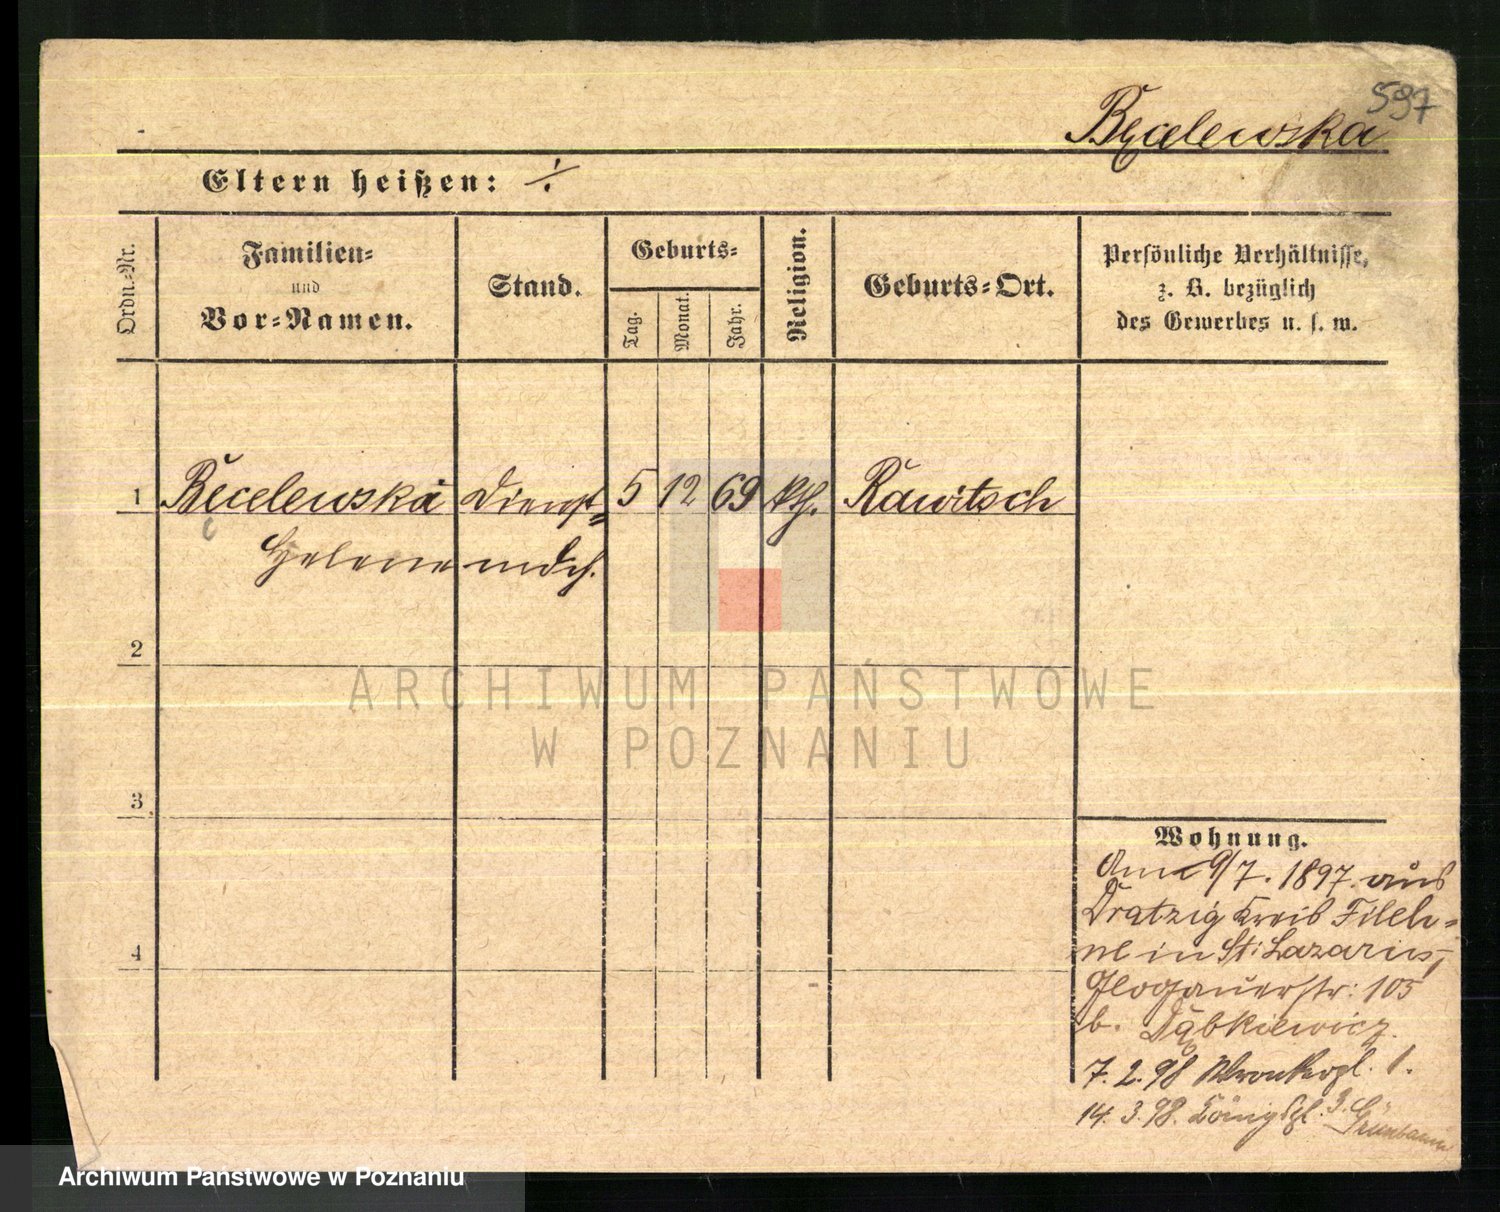 597
Bęcelewska
Eltern heißen: ./.
Ordn.-Nr.
Familien-
und
Vor-Namen.
Stand.
Geburts-
Tag.
Monat.
Jahr.
Religion.
Geburts-Ort.
Persönliche Verhältnisse,
z. B. bezüglich
des Gewerbes u. s. w.
1 Becelewska Dienst= 5 12 69 kth. Rawitsch
Helene mdch.
2
3
4
ARCHIWUM PAŃSTWOWE
W POZNANIU
Wohnung.
Am 9/7. 1897. aus
Dratzig Kreis Fileh=
ne in St: Lazarus,
Glogauerstr: 105
b. Dąbkiewicz.
7. 2. 98 Wronkerpl. 1.
14. 3. 98. Königspl. 3. Grünbaum
Archiwum Państwowe w Poznaniu